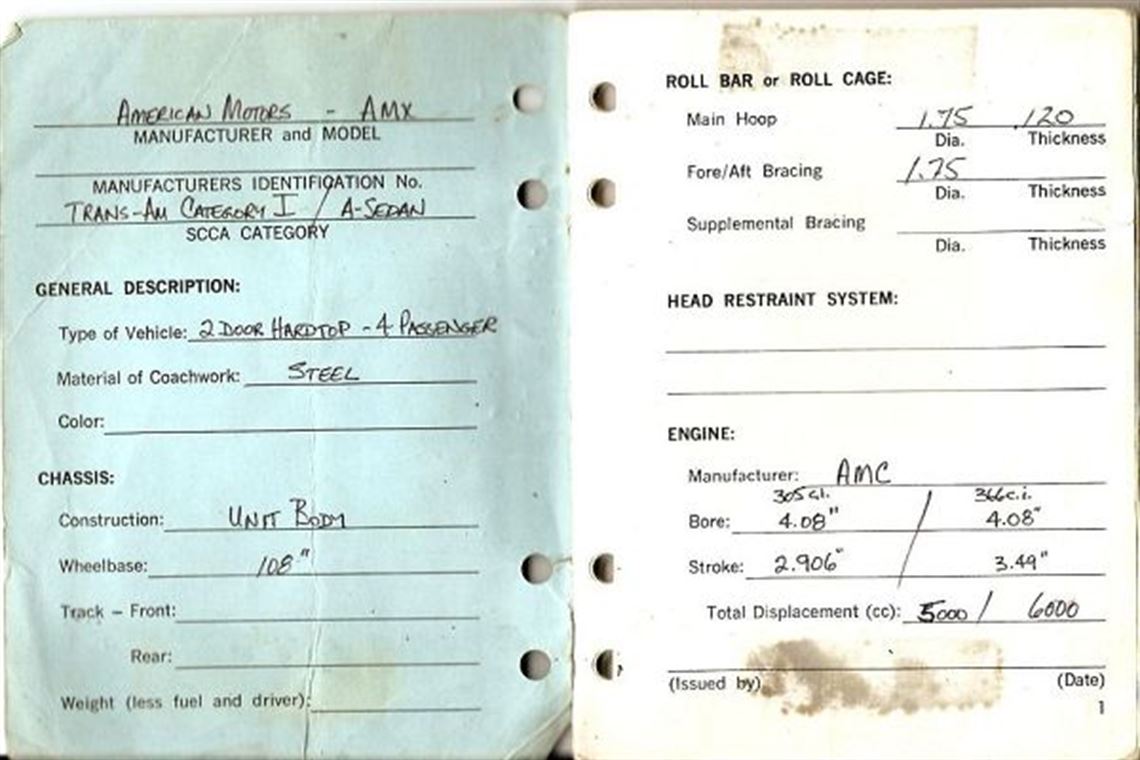 AMERICAN MOTORS - AMX
MANUFACTURER and MODEL
MANUFACTURERS IDENTIFICATION No.
TRANS-AM CATEGORY I / A-SEDAN
SCCA CATEGORY
GENERAL DESCRIPTION:
Type of Vehicle: 2 DOOR HARDTOP - 4 PASSENGER
Material of Coachwork: STEEL
Color:
CHASSIS:
Construction: UNIT BODY
Wheelbase: 108"
Track - Front:
Rear:
Weight (less fuel and driver):
ROLL BAR or ROLL CAGE:
Main Hoop 1.75 .120
Dia. Thickness
Fore/Aft Bracing 1.75
Dia. Thickness
Supplemental Bracing
Dia. Thickness
HEAD RESTRAINT SYSTEM:
ENGINE:
Manufacturer: AMC
305 c.i. / 366 c.i.
Bore: 4.08" 4.08"
Stroke: 2.906" 3.49"
Total Displacement (cc): 5000 / 6000
(Issued by) (Date)
1